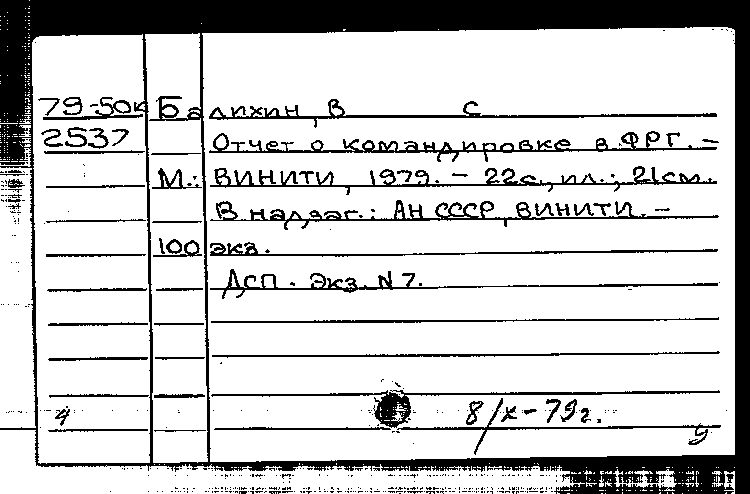 79-50к Балихин, В С
2537 Отчет о командировке в ФРГ. –
М.: ВИНИТИ, 1979. – 22с., ил.; 21см.
В надзаг.: АН СССР, ВИНИТИ. –
100 экз.
Дсп. Экз. N 7.
4 8/х-79г.